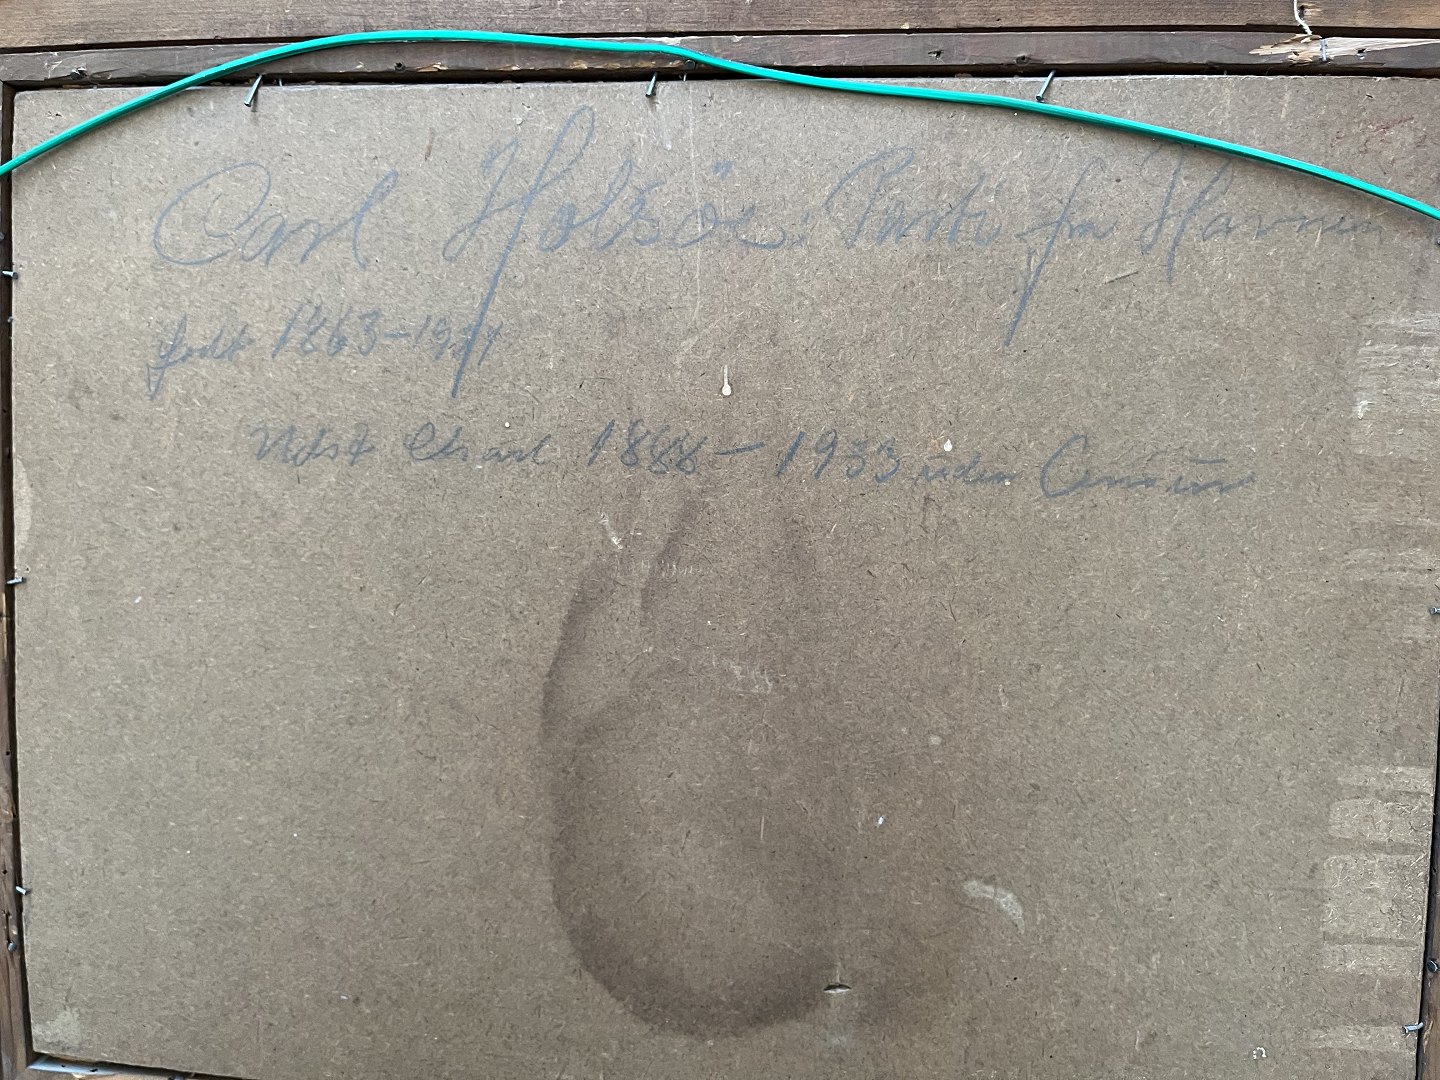 Carl Holsöe: Parti fra Havnen
född 1863-19
Udst Charl 1888-1933 uden Censur